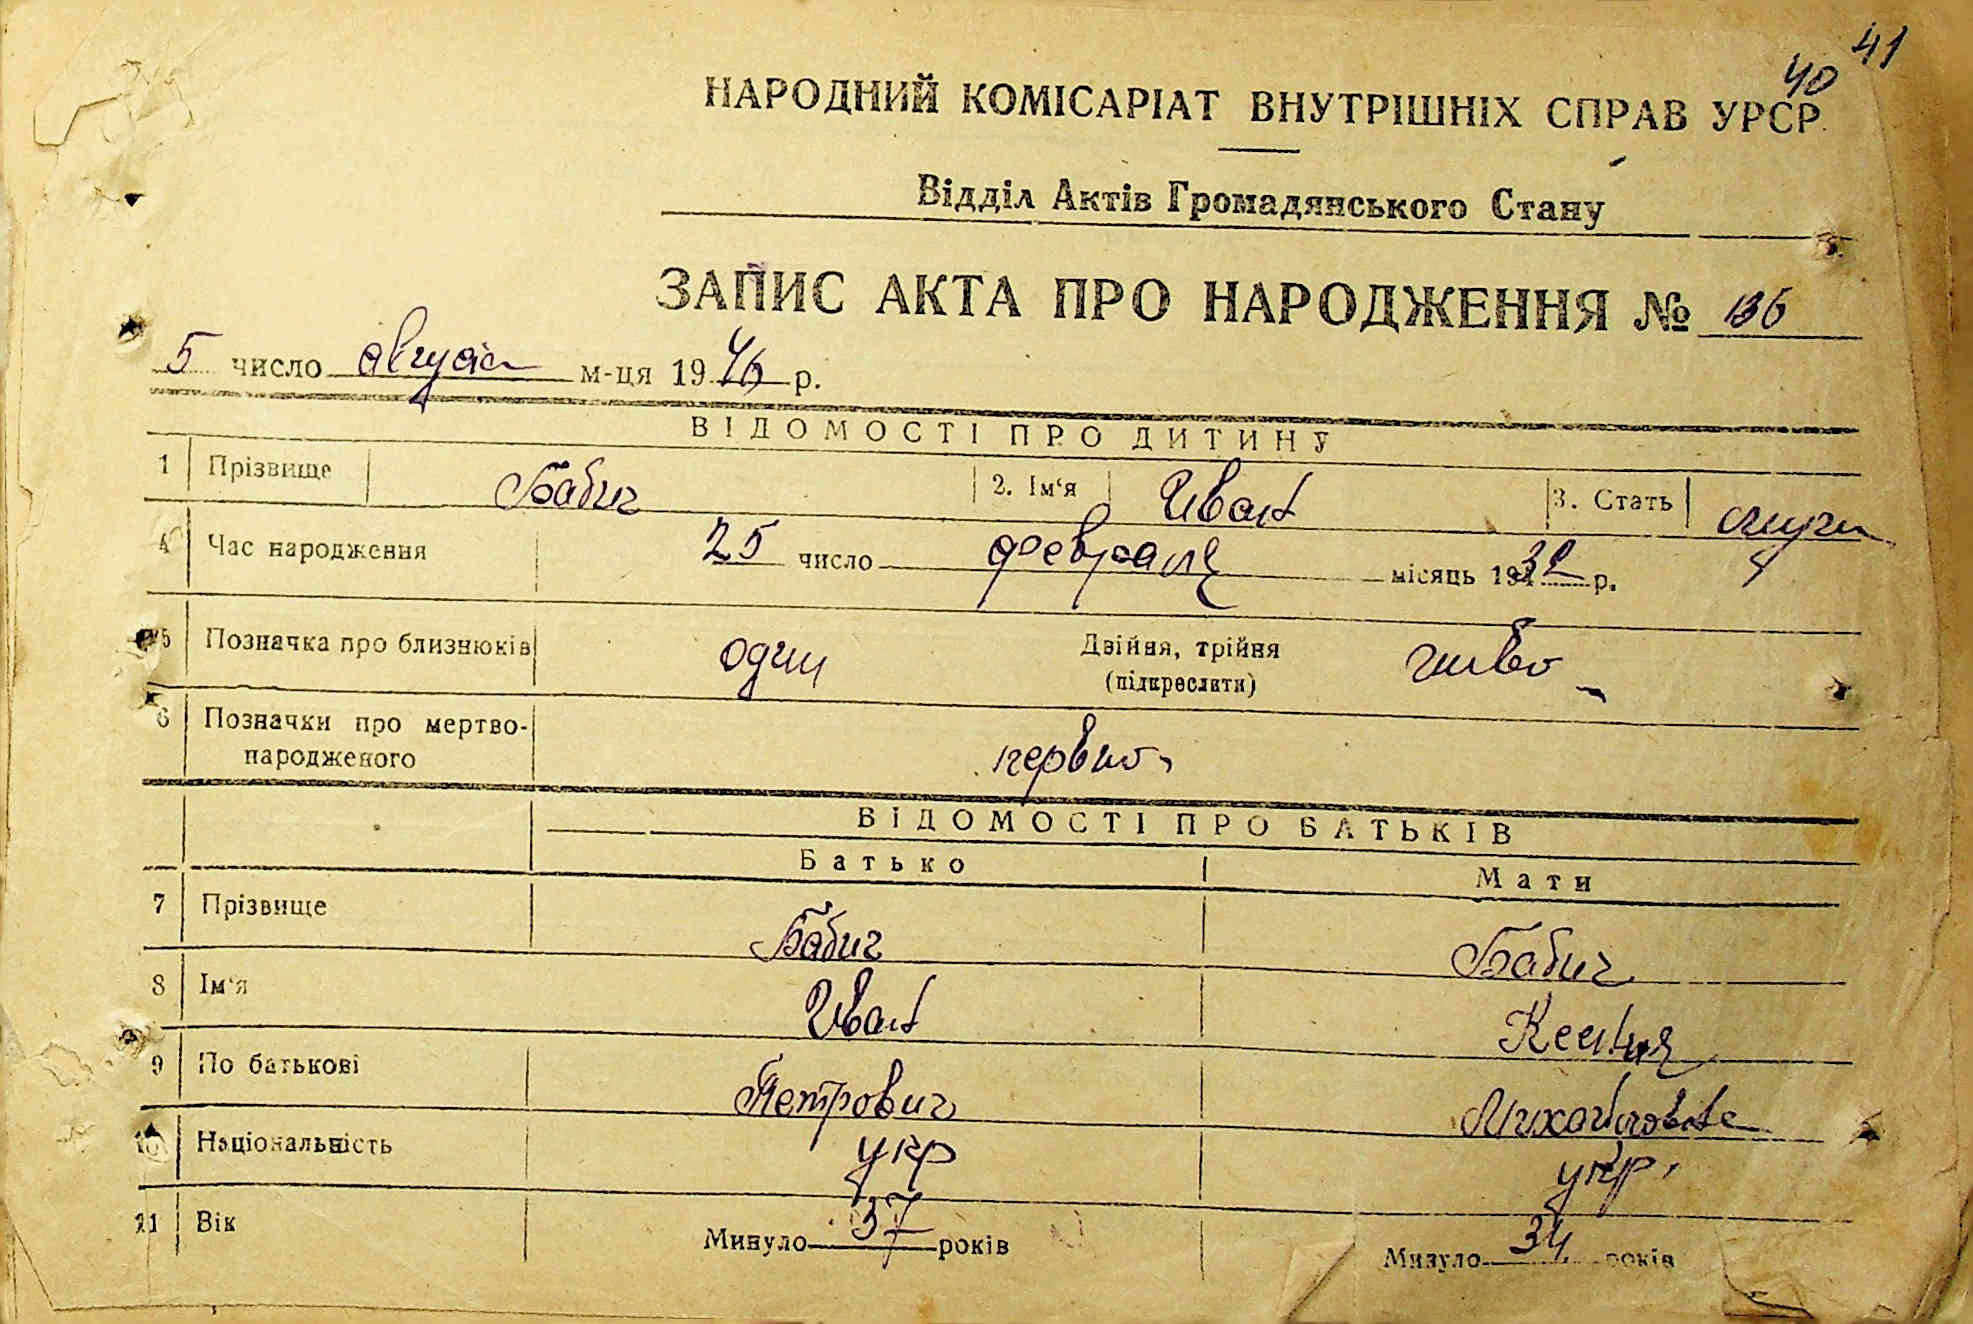 41
40
НАРОДНИЙ КОМІСАРІАТ ВНУТРІШНІХ СПРАВ УРСР
Відділ Актів Громадянського Стану
ЗАПИС АКТА ПРО НАРОДЖЕННЯ № 136
5 число августа м-ця 1946 р.
ВІДОМОСТІ ПРО ДИТИНУ
1 Прізвище Бабич 2. Ім'я Иван 3. Стать
4 Час народження 25 число февраля місяць 19 р.
5 Позначка про близнюків один Двійня, трійня живо
(підкреслити)
6 Позначки про мертво-
народженого
ВІДОМОСТІ ПРО БАТЬКІВ
Батько Мати
7 Прізвище Бабич Бабич
8 Ім'я Иван Ксения
9 По батькові Петрович Михайловна
10 Національність укр укр.
11 Вік Минуло 37 років Минуло 34 років